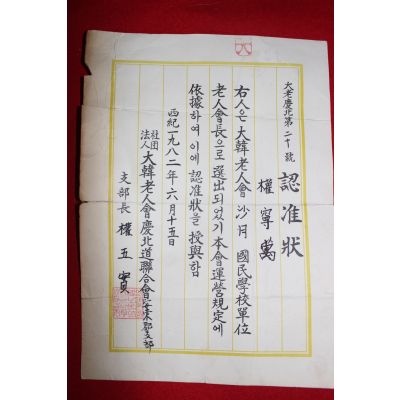 大老慶北第二十號
認准狀
權寧萬
右人은 大韓老人會 沙月 國民學校單位
老人會長으로 選出되었기 本會運營規定에
依據하여 이에 認准狀을 授與함
西紀一九八二年六月十五日
社団法人 大韓老人會慶北道聯合會安東郡支部
支部長 權五實